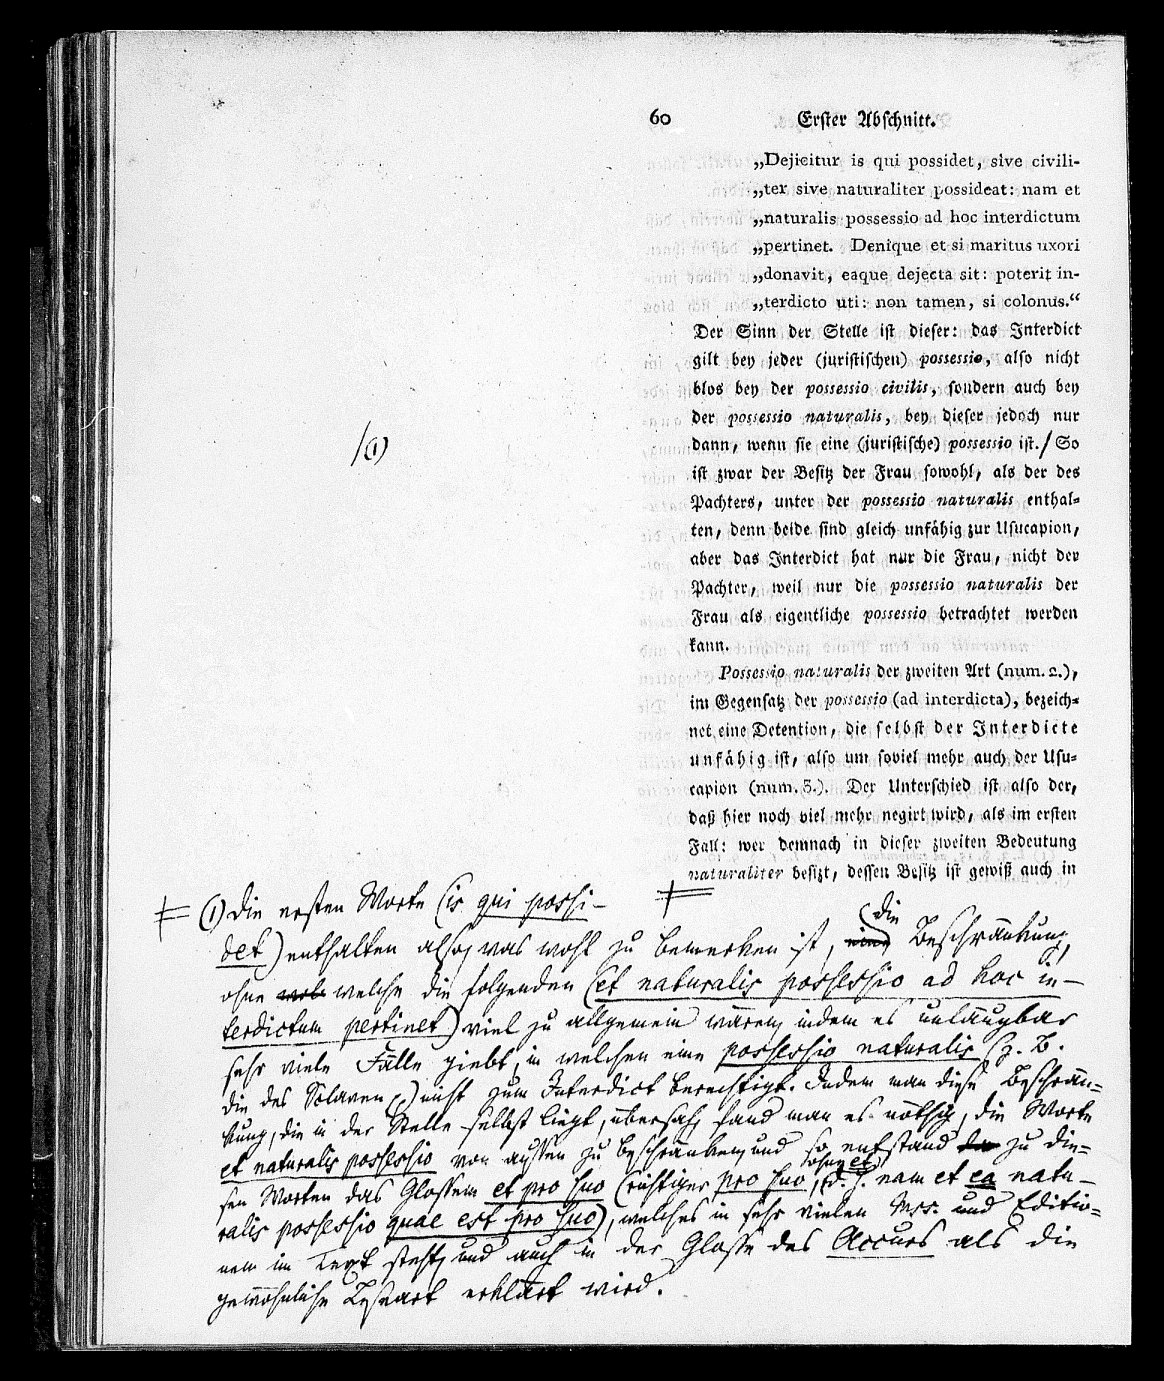 60 Erster Abschnitt.
„Dejicitur is qui possidet, sive civili-
„ter sive naturaliter possideat: nam et
„naturalis possessio ad hoc interdictum
„pertinet. Denique et si maritus uxori
„donavit, eaque dejecta sit: poterit in-
„terdicto uti: non tamen, si colonus.“
Der Sinn der Stelle ist dieser: das Interdict
gilt bey jeder (juristischen) possessio, also nicht
blos bey der possessio civilis, sondern auch bey
der possessio naturalis, bey dieser jedoch nur
dann, wenn sie eine (juristische) possessio ist./ So
/(1)
ist zwar der Besitz der Frau sowohl, als der des
Pachters, unter der possessio naturalis enthal-
ten, denn beide sind gleich unfähig zur Usucapion,
aber das Interdict hat nur die Frau, nicht der
Pachter, weil nur die possessio naturalis der
Frau als eigentliche possessio betrachtet werden
kann.
Possessio naturalis der zweiten Art (num. 2.),
im Gegensatz der possessio (ad interdicta), bezeich-
net eine Detention, die selbst der Interdicte
unfähig ist, also um soviel mehr auch der Usu-
capion (num. 3.). Der Unterschied ist also der,
daß hier noch viel mehr negirt wird, als im ersten
Fall: wer demnach in dieser zweiten Bedeutung
naturaliter besizt, dessen Besitz ist gewiß auch in
(1) Die ersten Worte (is qui possi-
det) enthalten also, was wohl zu bemerken ist, eine (die Beschränkung,
ohne welche die folgenden (et naturalis possessio ad hoc in-
terdictum pertinet) viel zu allgemein wären, indem es unläugbar
sehr viele Fälle giebt, in welchen eine possessio naturalis (z. B.
die des Sclaven) nicht zum Interdict berechtigt. Indem man diese Beschrän-
kung, die in der Stelle selbst liegt, übersah, fand man es nöthig, die Worte
et naturalis possessio von aussen zu beschränken, und so entstand zu die-
sen Worten das Glossem et pro suo (richtiger pro suo ohne et, d. i. nam et ea natu-
ralis possessio quae est pro suo), welches in sehr vielen Mss. und Editio-
nen im Text steht, und auch in der Glosse des Accurs als die
gewöhnliche Leseart erklärt wird.